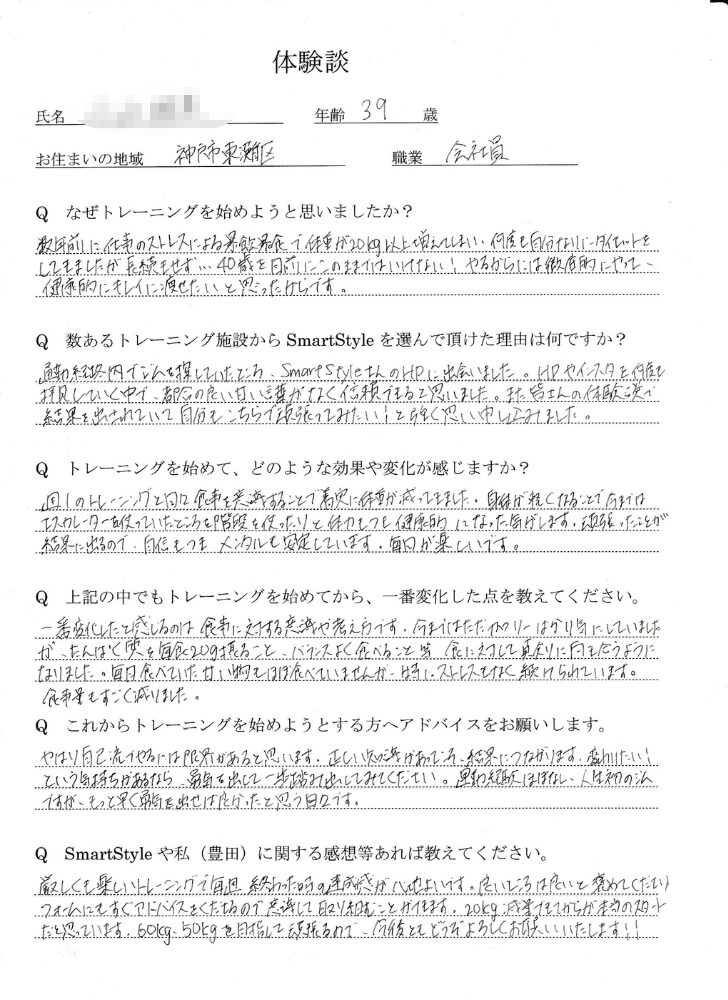 体験談
氏名
年齢 39 歳
お住まいの地域 神戸市東灘区
職業 会社員
Q なぜトレーニングを始めようと思いましたか？
数年前に仕事のストレスによる暴飲暴食で体重が20kg以上増えてしまい、何度も自分なりにダイエットを
してきましたが長続きせず…40歳を目前にこのままではいけない！やるからには徹底的にやって、
健康的にキレイに痩せたいと思ったからです。
Q 数あるトレーニング施設からSmartStyleを選んで頂けた理由は何ですか？
通勤経路内でジムを探していたところ、SmartStyleさんのHPに出会いました。HPやインスタを何度も
拝見していく中で、都合の良い甘い言葉がなく信頼できると思いました。また皆さんの体験談で
結果を出されていて自分もこちらで頑張ってみたい！と強く思い申し込みました。
Q トレーニングを始めて、どのような効果や変化が感じますか？
週1のトレーニングと日々食事を意識することで着実に体重が減ってきました。身体が軽くなることで今までは
エスカレーターを使っていたところを階段を使ったりと体力もつき健康的になった気がします。頑張ったことが
結果に出るので、自信もつきメンタルも安定しています。毎日が楽しいです。
Q 上記の中でもトレーニングを始めてから、一番変化した点を教えてください。
一番変化したと感じるのは食事に対する意識や考え方です。今まではただカロリーばかり気にしていました
が、たんぱく質を毎食20g摂ること、バランスよく食べること等、食に対して真剣に向き合うように
なりました。毎日食べていた甘い物もほぼ食べていませんが、特にストレスもなく続けられています。
食事量もすごく減りました。
Q これからトレーニングを始めようとする方へアドバイスをお願いします。
やはり自己流でやるには限界があると思います。正しい知識があってこそ、結果につながります。変わりたい！
という気持ちがあるなら、勇気を出して一歩踏み出してみてください。運動経験はほぼなし、人生初のジム
ですが、もっと早く勇気を出せば良かったと思う日々です。
Q SmartStyleや私（豊田）に関する感想等あれば教えてください。
厳しくも楽しいトレーニングで毎回終わった時の達成感が心地よいです。良いところは良いと褒めてくださり
フォームにもすぐアドバイスをくださるので意識して取り組むことができます。20kg減量できてからが本当のスタート
だと思っています。60kg、50kgを目指して頑張るので、今後ともどうぞよろしくお願いいたします！！